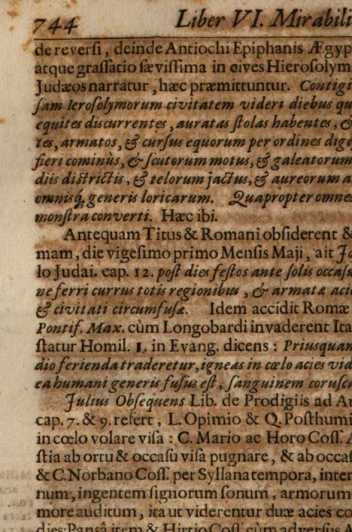 744 Liber VI. Mirabili
de reversi, deinde Antiochi Epiphanis Ægyp
atque grassatio sævissima in cives Hierosolym
Judæos narratur, hæc præmittuntur. Contigi
sam Ierosolymorum civitatem videri diebus qu
equites discurrentes, auratas stolas habentes, &
tes, armatos, & cursus equorum per ordines dige
fieri cominus, & scutorum motus, & galeatorum
diis districtis, & telorum jactus, & aureorum a
omnisq́, generis loricarum. Quapropter omnes
monstra converti. Hæc ibi.
Antequam Titus & Romani obsiderent &
mam, die vigesimo primo Mensis Maji, ait Jo
lo Judai. cap. 12. post dies festos ante solis occasu
ne ferri currus totis regionibus, & armatæ acie
& civitati circumfusæ. Idem accidit Romæ
Pontif. Max. cùm Longobardi invaderent Ita
statur Homil. 1. in Evang. dicens: Priusquam
dio ferienda traderetur, igneas in cœlo acies vid
ea humani generis fusus est, sanguinem corusca
Julius Obsequens Lib. de Prodigiis ad A
cap. 7. & 9. refert, L. Opimio & Q. Posthumi
in cœlo volare visa: C. Mario ac Horo Coss. A
stia ab ortu & occasu visa pugnare, & ab occas
& C. Norbano Coss. per Syllana tempora, inter
num, ingentem signorum sonum, armorum
more auditum, ita ut viderentur duæ acies co
dies: Pansâ item & Hirtio Coss. cùm adversus A